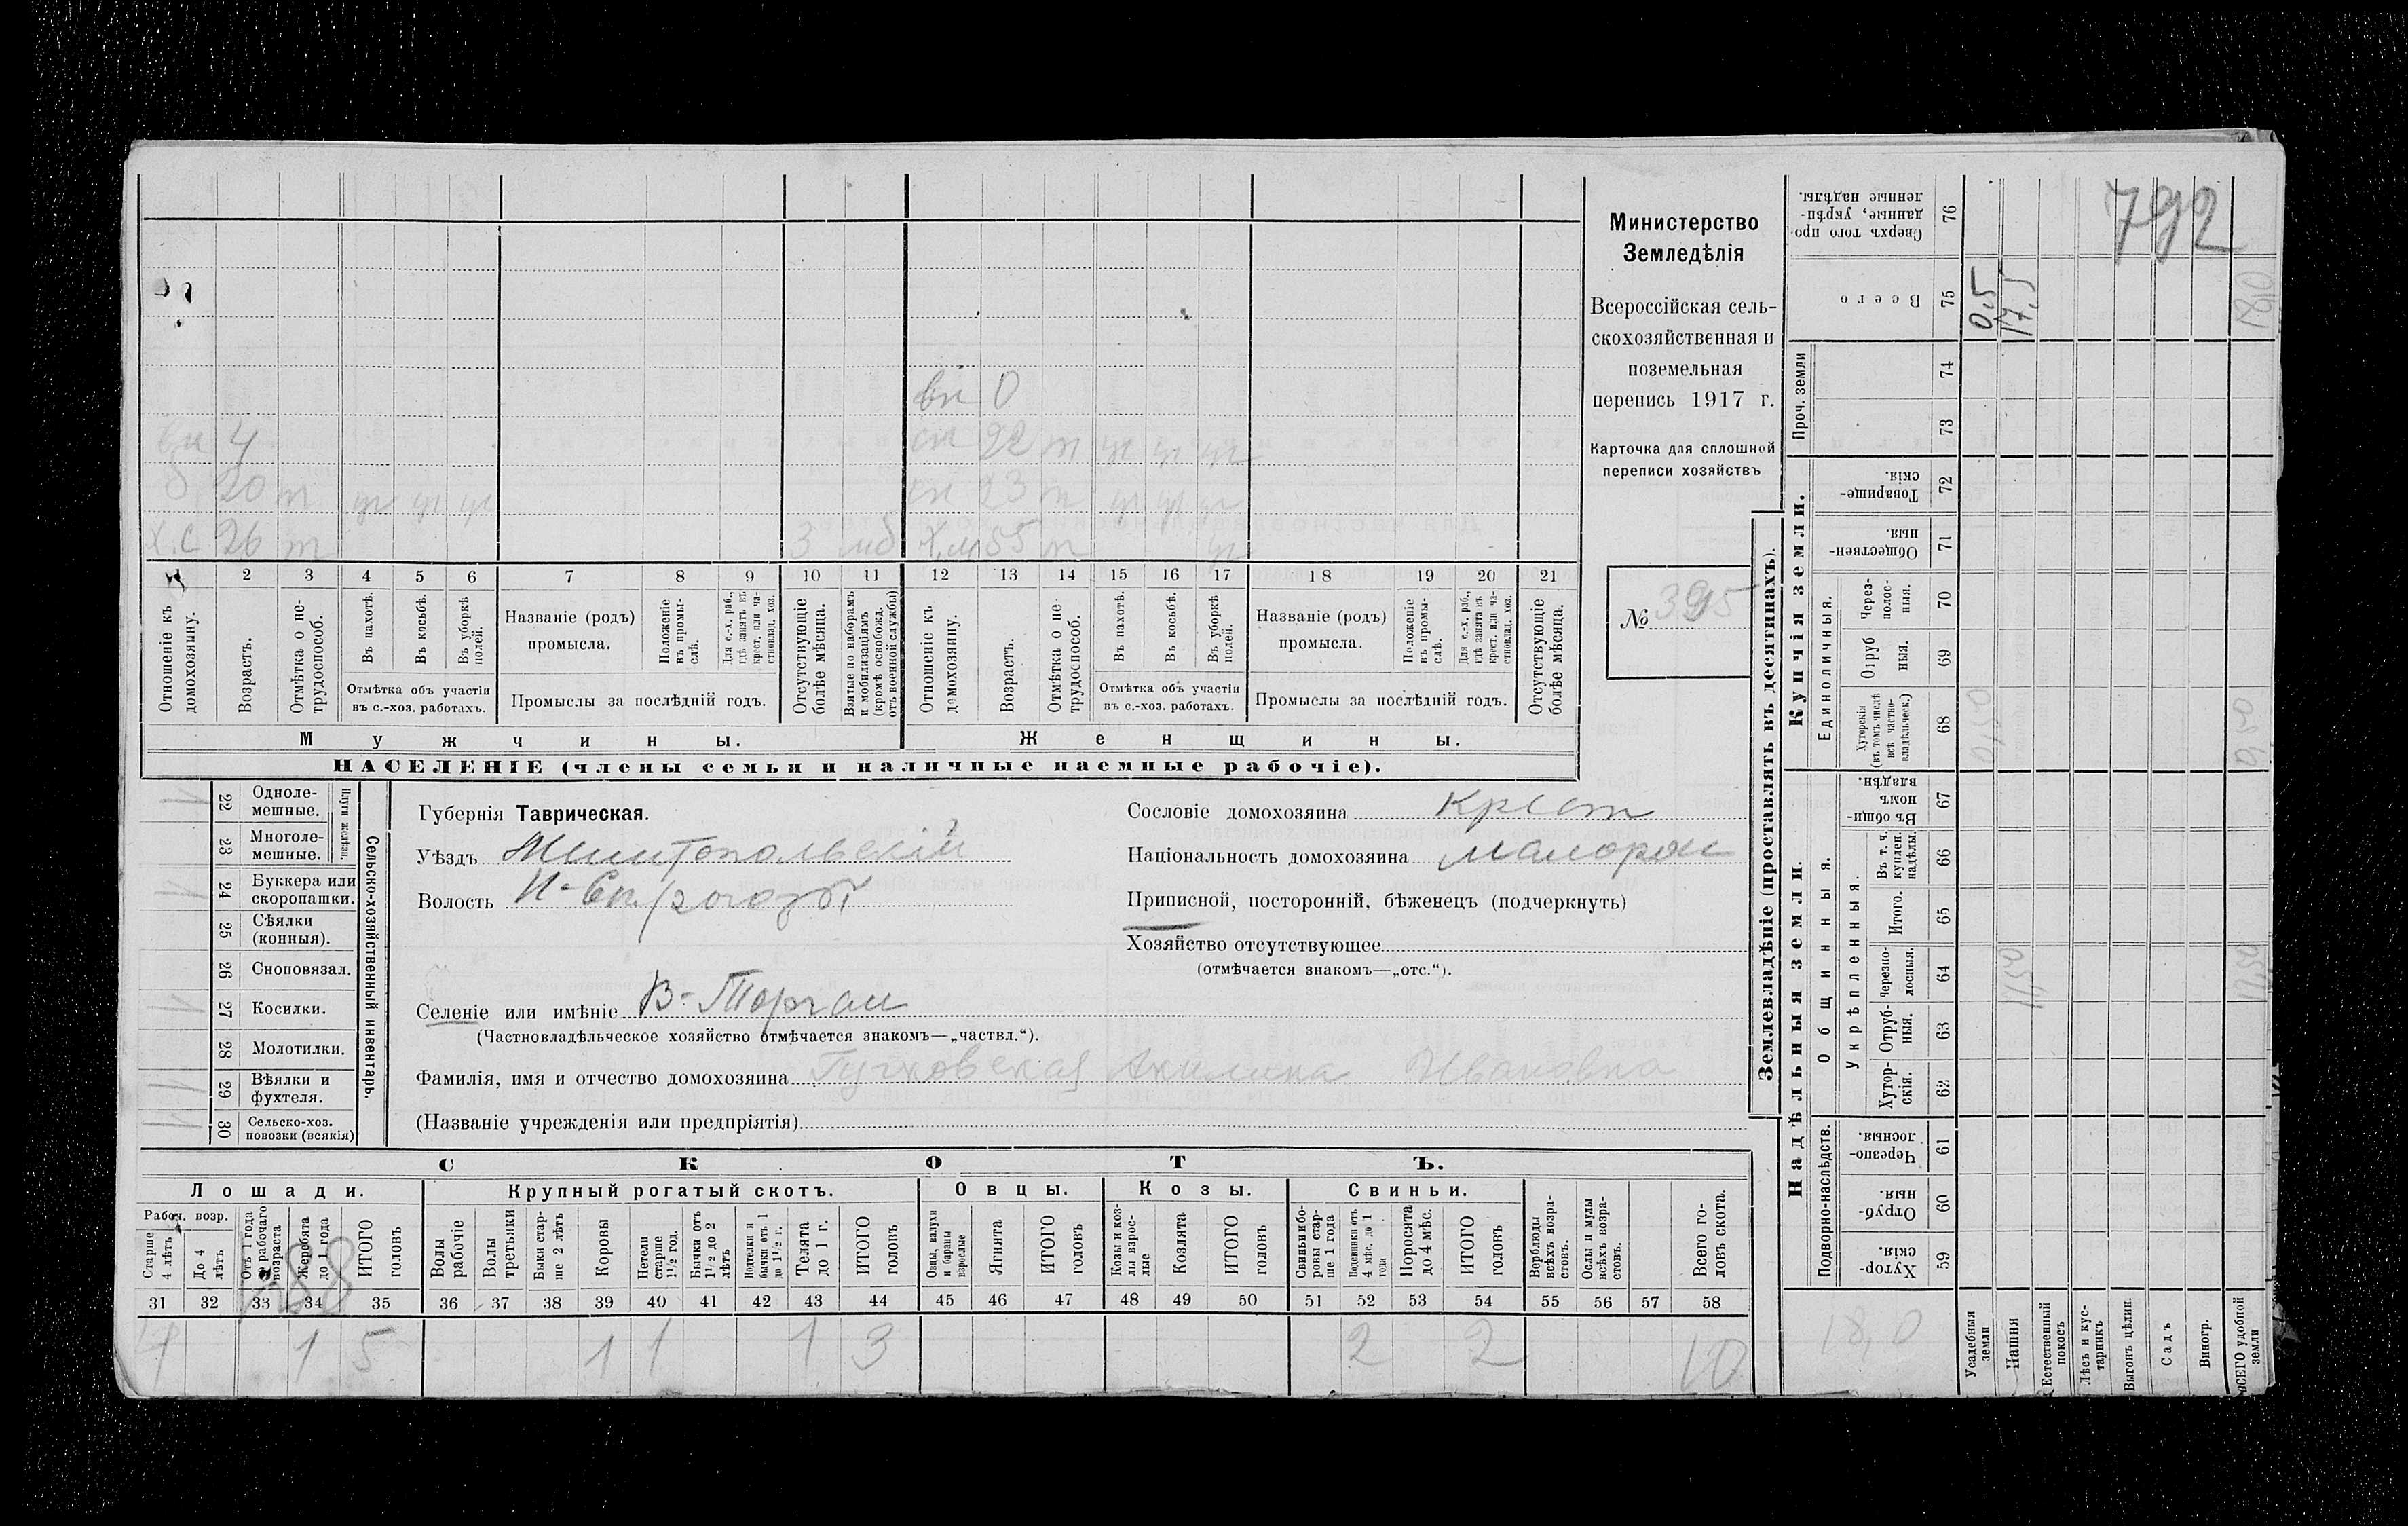 792
Министерство
Земледѣлія
Всероссійская сель-
скохозяйственная и
поземельная
перепись 1917 г.
Карточка для сплошной
переписи хозяйствъ
№ 395
вн 0
вн 4 сн 22 т уч уч уч
б 20 т уч уч уч сн 23 т уч уч уч
х.с 26 т 3 мб х.м 55 т уч
1 2 3 4 5 6 7 8 9 10 11 12 13 14 15 16 17 18 19 20 21
Отношеніе къ домохозяину.
Возрастъ.
Отмѣтка о не-трудоспособ.
Въ пахотѣ.
Въ косьбѣ.
Въ уборкѣ полей.
Отмѣтка объ участіи
въ с.-хоз. работахъ.
Названіе (родъ)
промысла.
Положеніе въ промы-слѣ.
Для с.-х. раб., гдѣ занятъ въ крест. или ча-стновлад. хоз.
Промыслы за послѣдній годъ.
Отсутствующіе болѣе мѣсяца.
Взятые по наборамъ и мобилизаціямъ (кромѣ освобожд. отъ военной службы)
Отношеніе къ домохозяину.
Возрастъ.
Отмѣтка о не-трудоспособ.
Въ пахотѣ.
Въ косьбѣ.
Въ уборкѣ полей.
Отмѣтка объ участіи
въ с.-хоз. работахъ.
Названіе (родъ)
промысла.
Положеніе въ промы-слѣ.
Для с.-х. раб., гдѣ занята въ крест. или ча-стновлад. хоз.
Промыслы за послѣдній годъ.
Отсутствующіе болѣе мѣсяца.
Мужчины. Женщины.
НАСЕЛЕНІЕ (члены семьи и наличные наемные рабочіе).
Сельско-хозяйственный инвентарь.
Плуги желѣзн.
1 22 Одноле-мешные.
23 Многоле-мешные.
1 24 Буккера или скоропашки.
25 Сѣялки (конныя).
26 Сноповязал.
1 27 Косилки.
28 Молотилки.
1 29 Вѣялки и фухтеля.
30 Сельско-хоз. повозки (всякія)
Губернія Таврическая.
Уѣздъ Мелитопольскій
Волость Н-Сп/рогозы
Селеніе или имѣніе В-Торгаи
(Частновладѣльческое хозяйство отмѣчается знакомъ—„частвл.“).
Фамилія, имя и отчество домохозяина Гучковская Акилина Ивановна
(Названіе учрежденія или предпріятія)
Сословіе домохозяина крест
Національность домохозяина малорос
Приписной, посторонній, бѣженецъ (подчеркнуть)
Хозяйство отсутствующее
(отмѣчается знакомъ—„отс.“).
СКОТЪ.
Лошади. Крупный рогатый скотъ. Овцы. Козы. Свиньи.
Рабоч. возр.
Старше 4 лѣтъ
До 4 лѣтъ
Отъ 1 года до рабочаго возраста
Жеребята до 1 года
ИТОГО головъ
Волы рабочіе
Волы третьяки
Быки стар-ше 2 лѣтъ
Коровы
Нетели старше 1½ год.
Бычки отъ 1½ до 2 лѣтъ
Подтелки и бычки отъ 1 до 1½ г.
Телята до 1 г.
ИТОГО головъ
Овцы, валухи и бараны взрослые
Ягнята
ИТОГО головъ
Козы и коз-лы взрос-лые
Козлята
ИТОГО головъ
Свиньи и бо-ровы стар-ше 1 года
Подсвинки отъ 4 мѣс. до 1 года
Поросята до 4 мѣс.
ИТОГО головъ
Верблюды всѣхъ возра-стовъ.
Ослы и мулы всѣхъ возра-стовъ.
Всего го-ловъ скота.
288
31 32 33 34 35 36 37 38 39 40 41 42 43 44 45 46 47 48 49 50 51 52 53 54 55 56 57 58
4 1 5 1 1 1 3 2 2 10
Землевладѣніе (проставлять въ десятинахъ).
Надѣльныя земли.
Купчія земли.
Проч. земли
Подворно-наслѣдств.
Общинныя.
Укрѣпленныя.
Единоличныя.
Сверхъ того про-данные, укрѣп-ленные надѣлы. 76
Всего 75 0,5 17,5 18,0
74
73
Товарище-скія. 72
Обществен-ныя. 71
Через-полос-ныя. 70
Отруб-ныя. 69
Хуторскія (въ томъ числѣ всѣ частно-владѣльческ.) 68
Въ общи-номъ владѣн. 67
Въ т. ч. куплен. надѣлы. 66
Итого. 65
Черезпо-лосныя. 64
Отруб-ныя. 63
Хутор-скія. 62
Черезпо-лосныя. 61
Отруб-ныя. 60
Хутор-скія. 59
18,0
Усадебныя земли
Пашня
Естественный покосъ
Лѣсъ и кус-тарникъ
Выгонъ цѣлин.
Садъ
Виногр.
ВСЕГО удобной земли